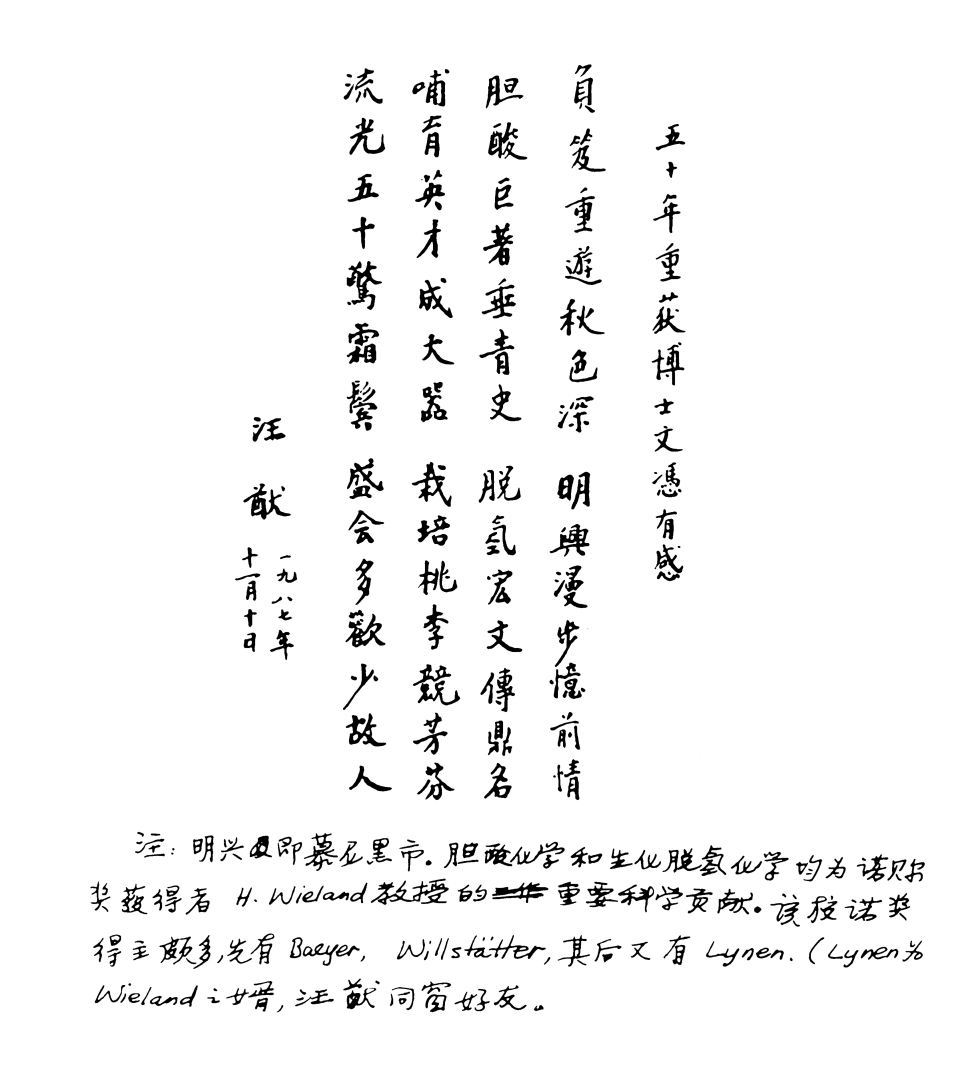 五十年重获博士文憑有感
負笈重遊秋色深 明興漫步憶前情
胆酸巨著垂青史 脱氢宏文傳鼎名
哺育英才成大器 栽培桃李競芳芬
流光五十驚霜鬓 盛会多歡少故人
汪猷
一九八七年
十一月十日
注：明兴即慕尼黑市。胆酸化学和生化脱氢化学均为诺贝尔
奖获得者 H. Wieland 教授的重要科学贡献。该校诺奖
得主颇多,先有 Baeyer, Willstätter,其后又有 Lynen. (Lynen为
Wieland之女婿,汪猷同窗好友。